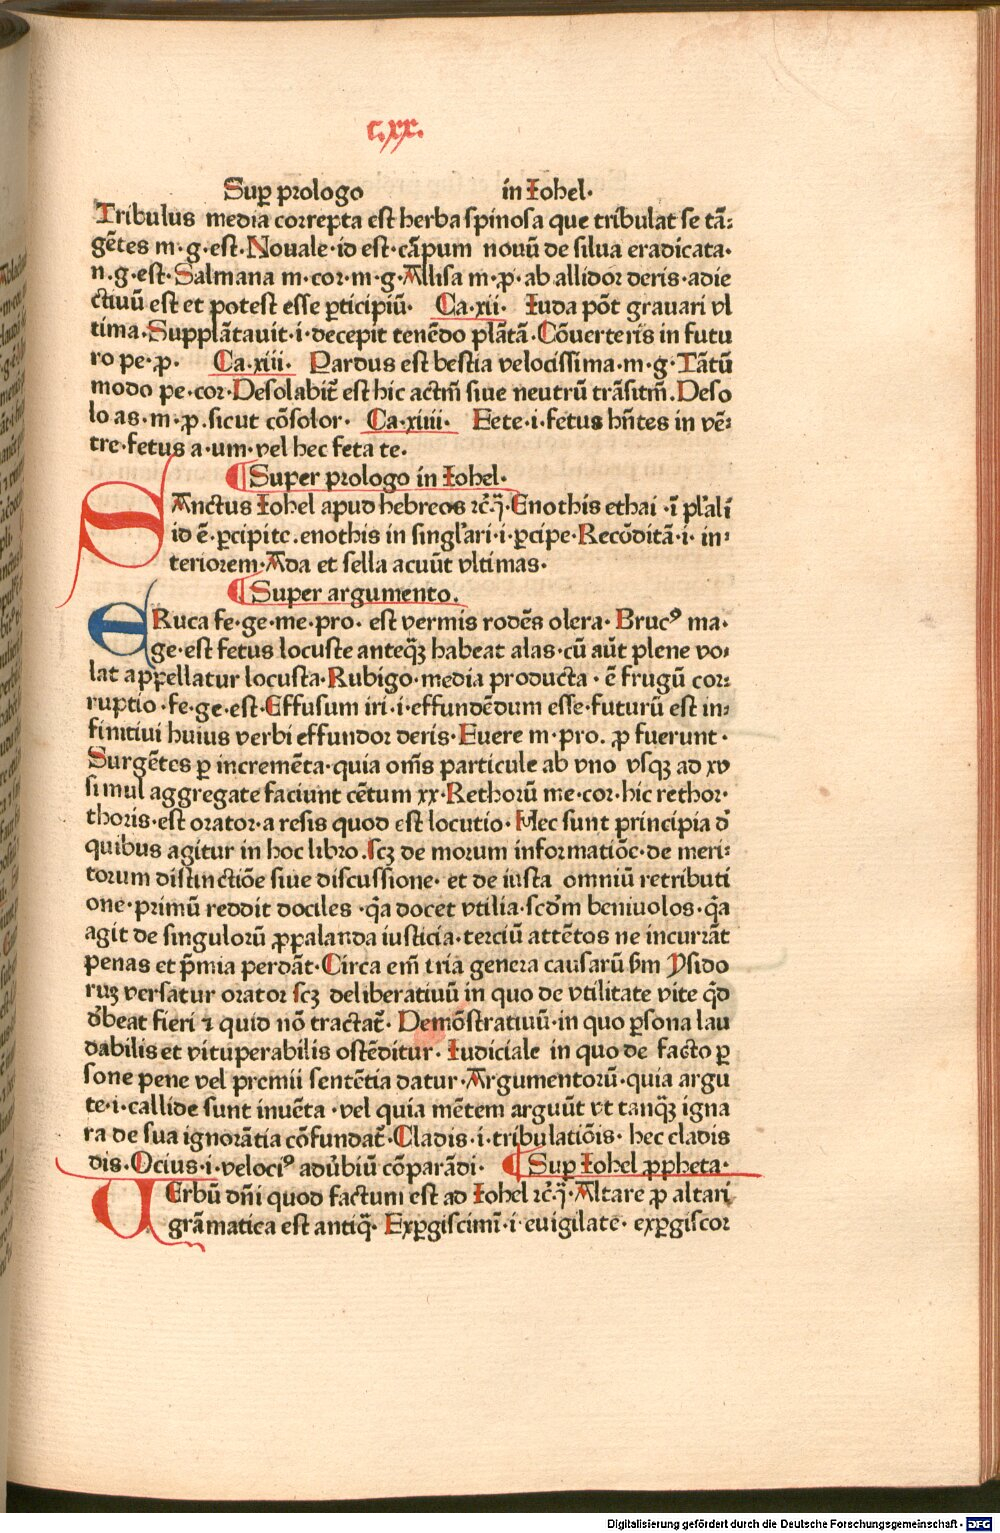 c.xx.
Suꝑ prologo in Iohel·
Tribulus media correpta est herba spinosa que tribulat se tā:
gētes m·g·est·Nouale·id est·cāpum nouū de silua eradicata·
n.g·est·Salmana m·cor·m·g·Allisa m·ꝓ·ab allidor deris·adie
ctiuū est et potest esse ꝑticipiū· Ca·xii· Iuda pōt grauari vl
tima·Supplātauit·i·decepit tenēdo plātā·Cōuerteris in futu
ro pe·ꝓ. Ca·xiii· Pardus est bestia velocissima·m·g·Tātū
modo pe·cor·Desolabit̄ est hic actm̄ siue neutrū trāsitm̄.Deso
lo as·m·ꝓ.sicut cōsolor· Ca·xiiii· Fete·i·fetus hñtes in vē:
tre·fetus a·um·vel hec feta te·
Super prologo in Iohel·
SAnctus Iohel apud hebreos ⁊c̄·q̄·Enothis ethai ·ī pl'ali
id ē·ꝑcipite.enothis in singl'ari·i·ꝑcipe·Recōditā·i·in:
teriorem·Ada et sella acuūt vltimas·
Super argumento.
eRuca fe·ge·me·pro· est vermis rodēs olera· Bruc⁹ ma·
ge·est fetus locuste anteq̄ꝫ habeat alas·cū aūt plene vo:
lat appellatur locusta·Rubigo·media producta·ē frugū cor:
ruptio·fe·ge·est·Effusum iri·i·effundēdum esse·futurū est in:
finitiui huius verbi effundor deris·Fuere m·pro. ꝓ fuerunt·
Surgētes ꝑ incremēta·quia om̄s particule ab vno vsqꝫ ad xv
simul aggregate faciunt cētum xx·Rethorū me·cor·hic rethor·
thoris·est orator·a resis quod est locutio·Hec sunt principia d̄
quibus agitur in hoc libro.scꝫ de morum informatiōe·de meri:
torum distinctiōe siue discussione· et de iusta omniū retributi
one·primū reddit dociles ·q̄a docet vtilia·scd̄m beniuolos·q̄a
agit de singulorū ꝓpalanda iusticia·terciū attētos ne incurrāt
penas et p̄mia perdāt·Circa em̄ tria genera causarū ẜm Ysido
rūꝫ versatur orator scꝫ deliberatiuū in quo de vtilitate vite q̄d
d̄beat fieri ⁊ quid nō tractat̄· Demōstratiuū·in quo ꝑsona lau
dabilis et vituperabilis ostēditur· Iudiciale in quo de facto ꝑ
sone pene vel premii sentētia datur·Argumentorū·quia argu
te·i·callide sunt inuēta ·vel quia mētem arguūt vt tanq̄ꝫ igna
ra de sua ignorātia cōfundat̄·Cladis·i·tribulatiōis· hec cladis
dis·Ocius·i·veloci⁹ adūbiū cōparādi· Suꝑ Iohel ꝓpheta·
VErbū dñi quod factum est ad Iohel ⁊c̄·q̄·Altare ꝓ altari
grāmatica est antiq̄· Exꝑgiscimī·i·euigilate· exꝑgiscor
Digitalisierung gefördert durch die Deutsche Forschungsgemeinschaft - DFG